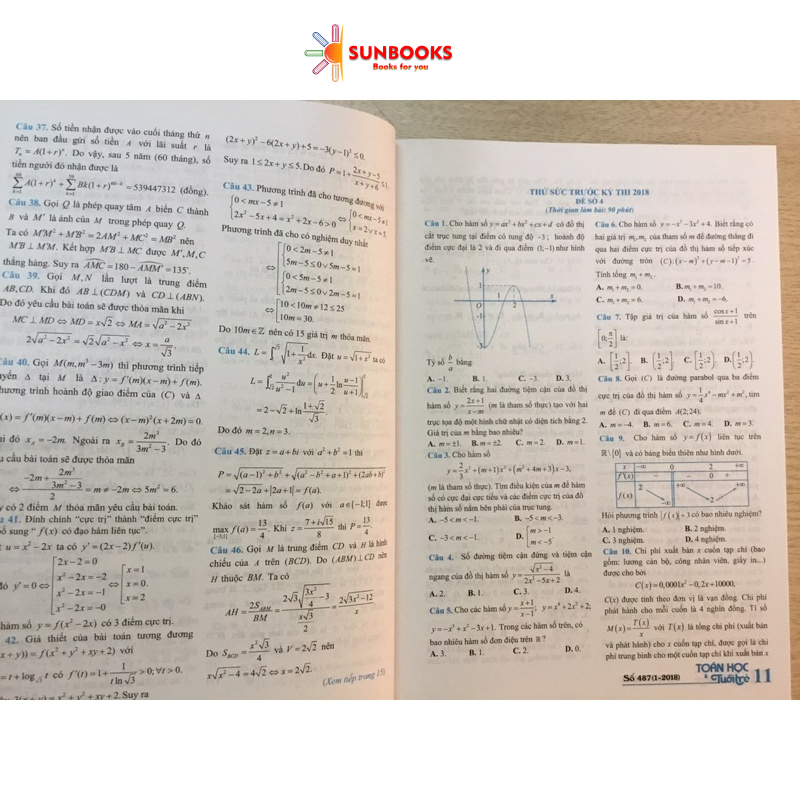 SUNBOOKS
Books for you
Câu 37. Số tiền nhận được vào cuối tháng thứ n
nên ban đầu gửi số tiền A với lãi suất r là
Tₙ = A(1+r)ⁿ. Do vậy, sau 5 năm (60 tháng), số
tiền người đó nhận được là
= 539447312 (đồng).
Câu 38. Gọi Q là phép quay tâm A biến C thành
B và M' là ảnh của M trong phép quay Q.
Ta có M'M² + M'B² = 2AM² + MC² = MB² nên
M'B ⊥ M'M. Kết hợp M'B ⊥ MC được M', M, C
thẳng hàng. Suy ra AMC = 180 − AMM' = 135°.
Câu 39. Gọi M, N lần lượt là trung điểm
AB, CD. Khi đó AB ⊥ (CDM) và CD ⊥ (ABN).
Do đó yêu cầu bài toán sẽ được thỏa mãn khi
MC ⊥ MD ⇔ MD = x√2 ⇔ MA = √(a² − 2x²)
2√(a² − 2x²) = 2√2√(a² − x²) ⇔ x = a/√3.
Câu 40. Gọi M(m, m³ − 3m) thì phương trình tiếp
tuyến Δ tại M là Δ: y = f'(m)(x − m) + f(m).
hương trình hoành độ giao điểm của (C) và Δ
(x) = f'(m)(x − m) + f(m) ⇔ (x − m)²(x + 2m) = 0.
hi đó x_A = −2m. Ngoài ra x_B = 2m³/(3m² − 3). Do đó
u cầu bài toán sẽ được thỏa mãn
⇔ (−2m + 2m³/(3m² − 3))/2 = m ≠ −2m ⇔ 5m² = 6.
y có 2 điểm M thỏa mãn yêu cầu bài toán.
u 41. Đính chính “cực trị” thành “điểm cực trị”
ổ sung “ f(x) có đạo hàm liên tục”.
t u = x² − 2x ta có y' = (2x − 2)f'(u).
đó y' = 0 ⇔ [2x − 2 = 0; x² − 2x = −2; x² − 2x = −1; x² − 2x = −0 ⇔ [x = 1; x = 0.; x = 2
hàm số y = f(x² − 2x) có 3 điểm cực trị.
42. Giả thiết của bài toán tương đương
x + y)) = f(x² + y² + xy + 2) với
= t + log_√3 t có f'(t) = 1 + 1/(t ln√3) > 0; ∀t > 0.
x² + y² + xy + 2. Suy ra
(2x + y)² − 6(2x + y) + 5 = −3(y − 1)² ≤ 0.
Suy ra 1 ≤ 2x + y ≤ 5. Do đó P = 1 + (2x + y − 5)/(x + y + 6) ≤ 1.
Câu 43. Phương trình đã cho tương đương với
{0 < mx − 5 ≠ 1; 2x² − 5x + 4 = x² + 2x − 6 > 0 ⇔ {0 < mx − 5 ≠ 1; x = 2 ∨ x = 5.
Phương trình đã cho có nghiệm duy nhất
⇔ [{0 < 2m − 5 ≠ 1
5m − 5 ≤ 0 ∨ 5m − 5 = 1
{0 < 5m − 5 ≠ 1
2m − 5 ≤ 0 ∨ 2m − 5 = 1
⇔ [10 < 10m ≠ 12 ≤ 25
10m = 30.
Do 10m ∈ ℤ nên có 15 giá trị m thỏa mãn.
Câu 44. L = ∫ √(1 + 1/x²) dx. Đặt u = √(1 + x²) ta có
L = ∫ u²/(u² − 1) du = (u + ½ ln (u − 1)/(u + 1))
= 2 − √2 + ln (1 + √2)/√3.
Do đó m = 2, n = 3.
Câu 45. Đặt z = a + bi với a² + b² = 1 thì
P = √((a − 1)² + b²) + √((a² − b² + a + 1)² + (2ab + b)²)
= √(2 − 2a) + |2a + 1| = f(a).
Khảo sát hàm số f(a) với a ∈ [−1;1] được
max f(a) = 13/4. Khi z = (7 + i√15)/8 thì P = 13/4.
[−1;1]
Câu 46. Gọi M là trung điểm CD và H là hình
chiếu của A trên (BCD). Do (ABM) ⊥ CD nên
H thuộc BM. Ta có
AH = 2S_ABM/BM = (2√3/2 · √(3x²/4 − 3))/(x√3/2) = 2√(3x² − 12)/x
Do S_BCD = x²√3/4 và V = 2√2 nên
x√(x² − 4) = 4√2 ⇔ x = 2√2.
(Xem tiếp trang 15)
THỬ SỨC TRƯỚC KỲ THI 2018
ĐỀ SỐ 4
(Thời gian làm bài: 90 phút)
Câu 1. Cho hàm số y = ax³ + bx² + cx + d có đồ thị
cắt trục tung tại điểm có tung độ −3 ; hoành độ
điểm cực đại là 2 và đi qua điểm (1;−1) như hình
vẽ.
y
1
O
1
2
x
-1
-3
Tỷ số b/a bằng
A. −1. B. 1. C. −3. D. 3.
Câu 2. Biết rằng hai đường tiệm cận của đồ thị
hàm số y = (2x + 1)/(x − m) (m là tham số thực) tạo với hai
trục tọa độ một hình chữ nhật có diện tích bằng 2.
Giá trị của m bằng bao nhiêu?
A. m = ±1. B. m = ±2. C. m = 2. D. m = 1.
Câu 3. Cho hàm số
y = 2/3 x³ + (m + 1)x² + (m² + 4m + 3)x − 3,
(m là tham số thực). Tìm điều kiện của m để hàm
số có cực đại cực tiểu và các điểm cực trị của đồ
thị hàm số nằm bên phải của trục tung.
A. −5 < m < −1. B. −5 < m < −3.
C. −3 < m < −1. D. [m > −1
m < −5
Câu 4. Số đường tiệm cận đứng và tiệm cận
ngang của đồ thị hàm số y = √(x² − 4)/(2x² − 5x + 2) là
A. 2. B. 1. C. 3. D. 4.
Câu 5. Cho các hàm số y = (x + 1)/(x − 1); y = x⁴ + 2x² + 2;
y = −x³ + x² − 3x + 1. Trong các hàm số trên, có
bao nhiêu hàm số đơn điệu trên ℝ?
A. 3. B. 1. C. 2. D. 0.
Câu 6. Cho hàm số y = −x³ − 3x² + 4. Biết rằng có
hai giá trị m₁, m₂ của tham số m để đường thẳng đi
qua hai điểm cực trị của đồ thị hàm số tiếp xúc
với đường tròn (C):(x − m)² + (y − m − 1)² = 5.
Tính tổng m₁ + m₂.
A. m₁ + m₂ = 0. B. m₁ + m₂ = 10.
C. m₁ + m₂ = 6. D. m₁ + m₂ = −6.
Câu 7. Tập giá trị của hàm số (cos x + 1)/(sin x + 1) trên
[0; π/2] là:
A. [1/2; 2]. B. (1/2; 2]. C. [1/2; 2). D. (1/2; 2).
Câu 8. Gọi (C) là đường parabol qua ba điểm
cực trị của đồ thị hàm số y = ¼x⁴ − mx² + m², tìm
m để (C) đi qua điểm A(2;24).
A. m = −4. B. m = 6. C. m = 4. D. m = 3.
Câu 9. Cho hàm số y = f(x) liên tục trên
ℝ\{0} và có bảng biến thiên như hình dưới.
x −∞ 0 2 +∞
f'(x) − − 0 +
f(x) 2 +∞ +∞
−∞ −2
Hỏi phương trình |f(x)| = 3 có bao nhiêu nghiệm?
A. 1 nghiệm. B. 2 nghiệm.
C. 3 nghiệm. D. 4 nghiệm.
Câu 10. Chi phí xuất bản x cuốn tạp chí (bao
gồm: lương cán bộ, công nhân viên, giấy in...)
được cho bởi
C(x) = 0,0001x² − 0,2x + 10000,
C(x) được tính theo đơn vị là vạn đồng. Chi phí
phát hành cho mỗi cuốn là 4 nghìn đồng. Tỉ số
M(x) = T(x)/x với T(x) là tổng chi phí (xuất bản
và phát hành) cho x cuốn tạp chí, được gọi là chi
phí trung bình cho một cuốn tạp chí khi xuất bản x
Số 487(1-2018)
TOÁN HỌC
& Tuổi trẻ
11